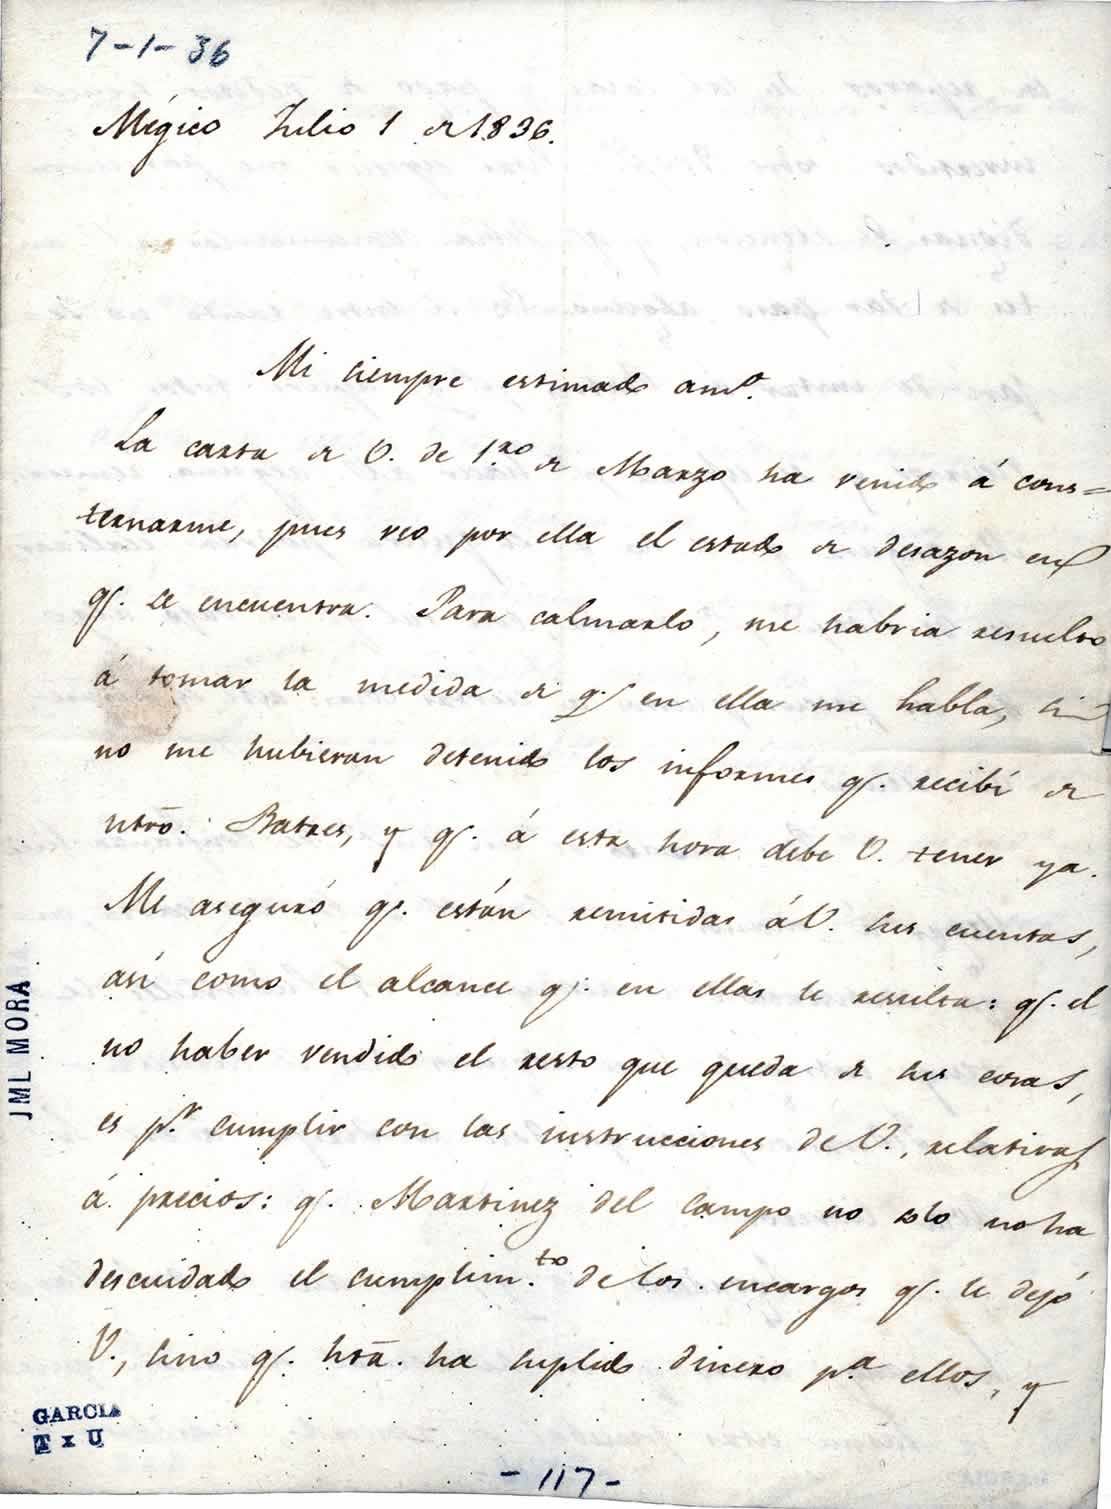 7-1-36
Mégico Julio 1 de 1836.
Mi siempre estimado amº.
La carta de V. de 1.ro de Marzo ha venido á cons=
ternarme, pues veo por ella el estado de desazon en
q.e se encuentra. Para calmarlo, me habria resuelto
á tomar la medida de q.e en ella me habla, si
no me hubieran detenido los informes q.e recibí de
ntrō. Batres, y q.e á esta hora debe V. tener ya.
Me aseguró q.e están remitidas á V. sus cuentas,
así como el alcance q.e en ellas le resulta: q.e el
no haber vendido el resto que queda de sus cosas,
es p.r cumplir con las instrucciones de V., relativas
á precios: q.e Martinez del Campo no solo no ha
descuidado el cumplim.to de los encargos q.e le dejó
V., sino q.e hstā. ha suplido dinero p.a ellos, y
JML MORA
GARCIA
T x U
-117-